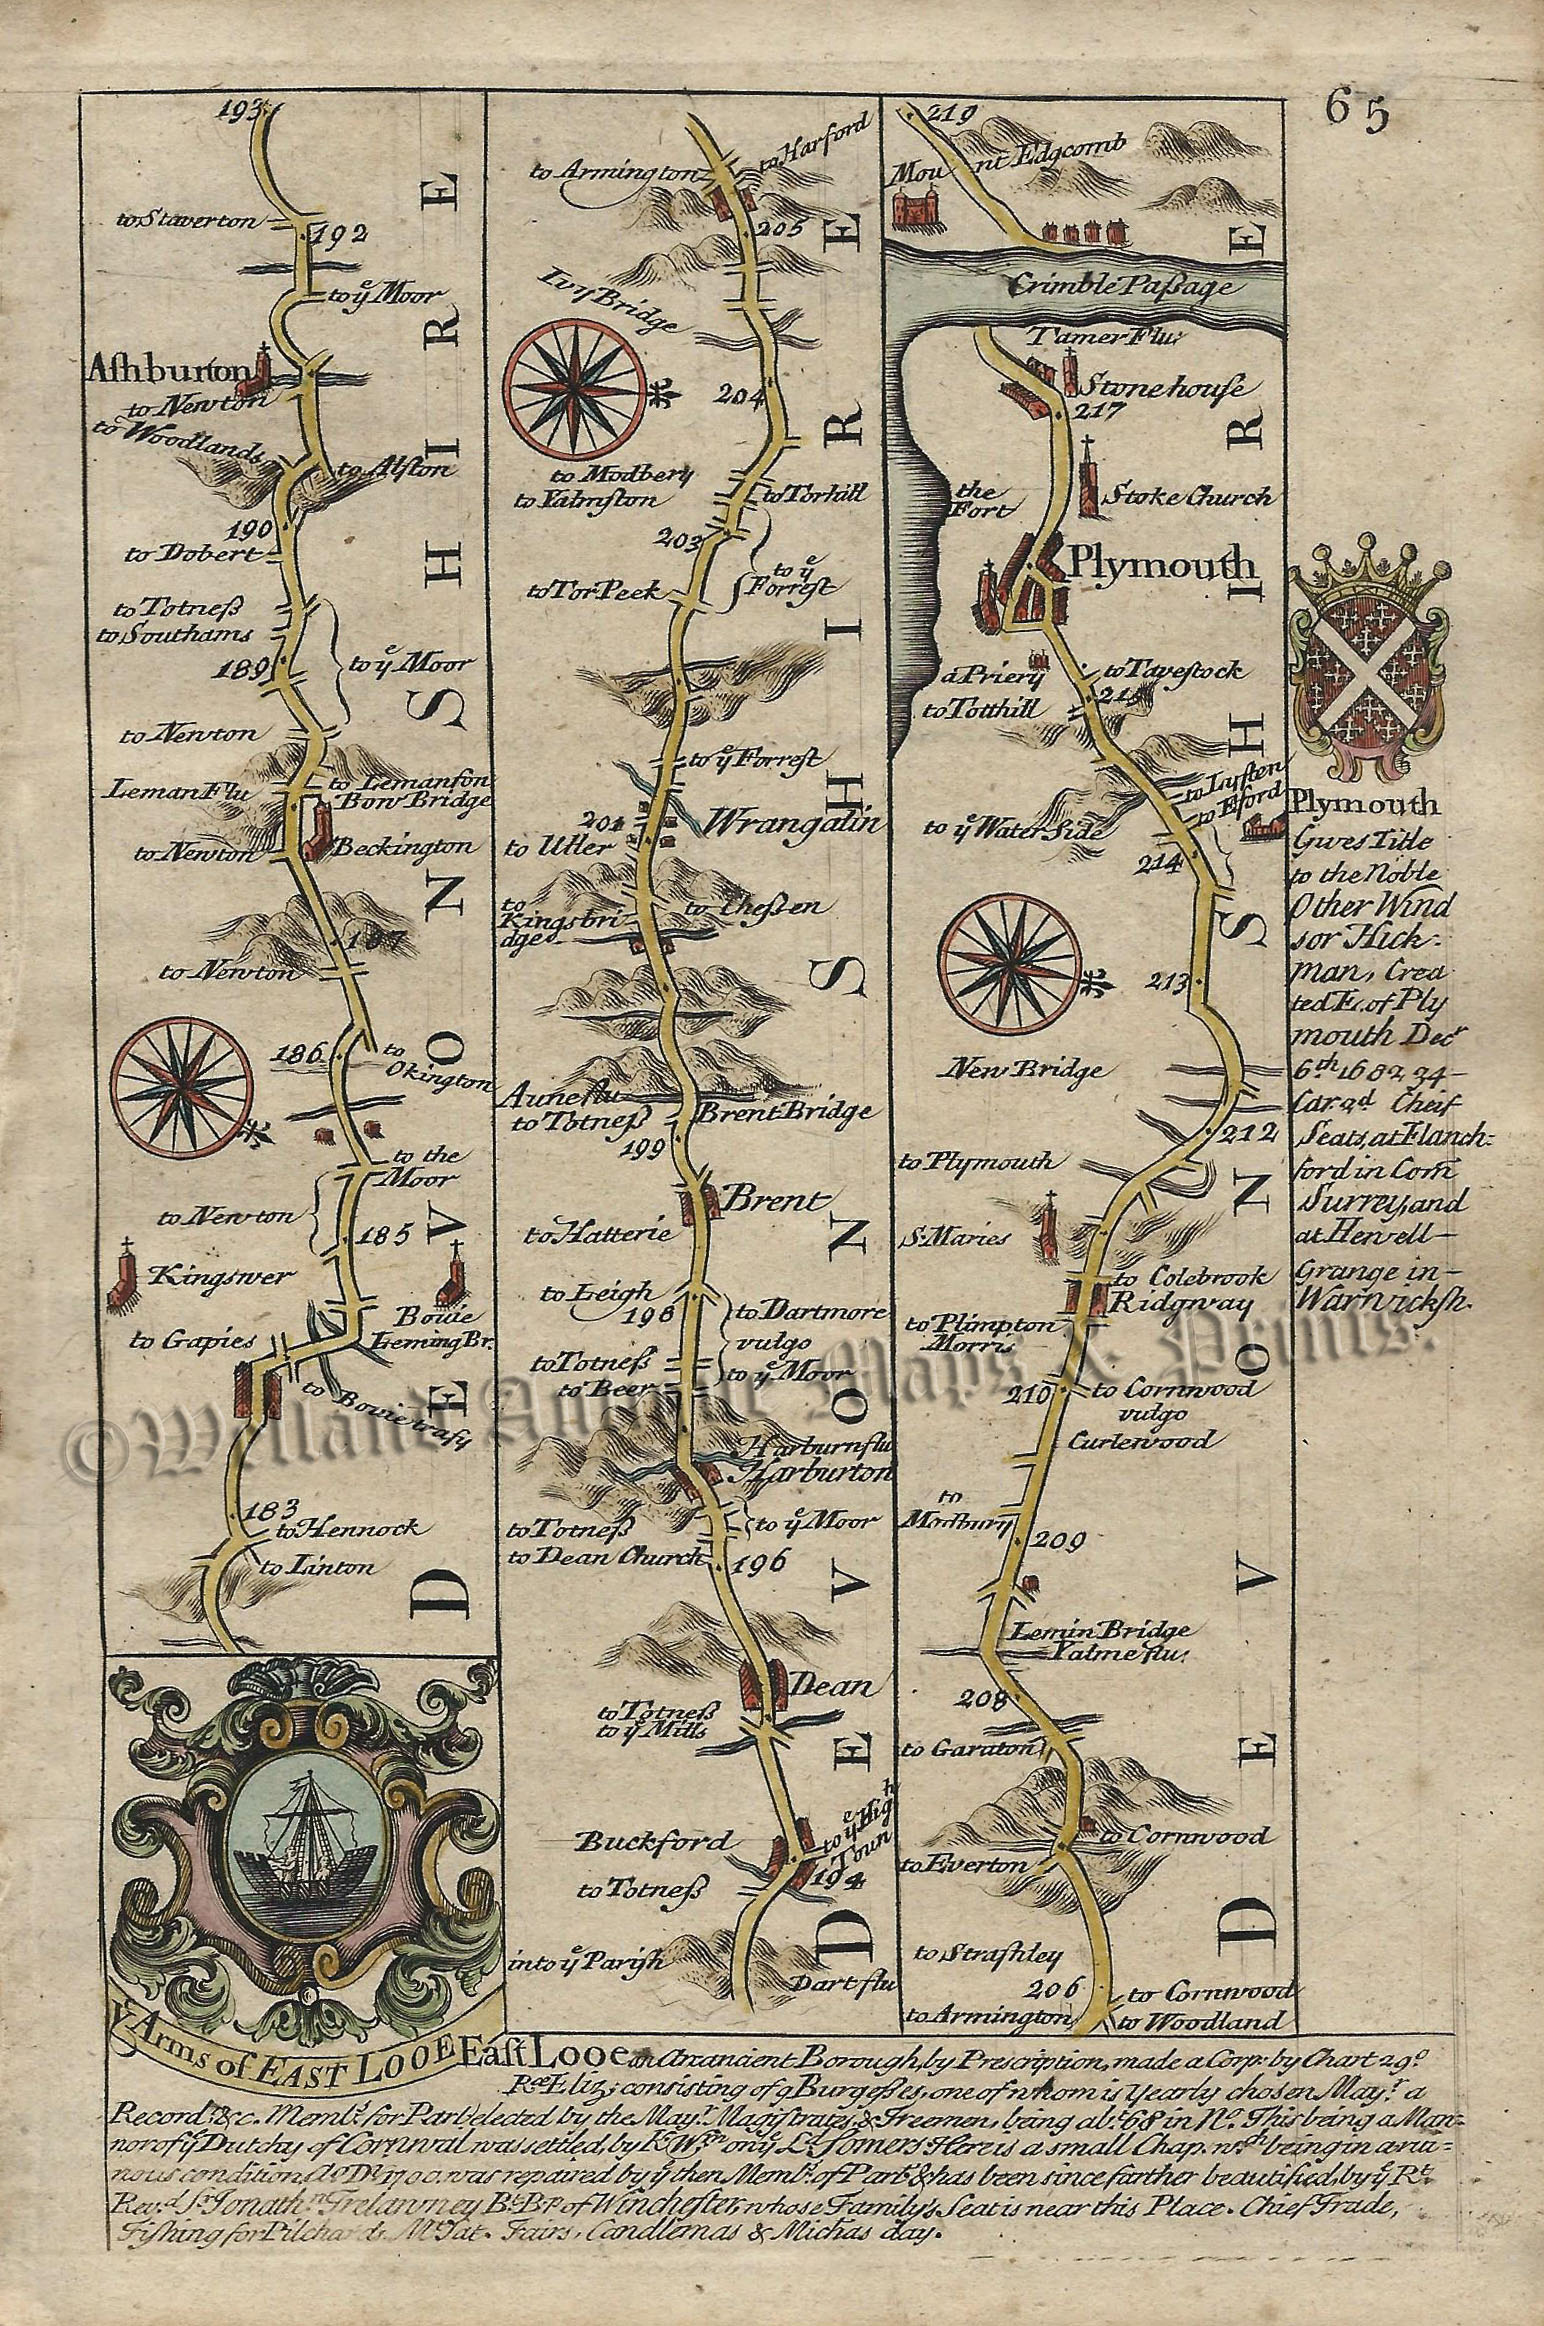 65
193
to Staverton
192
to yͤ Moor
Aſhburton
to Newton
to Woodlands
to Alſton
190
to Dobert
to Totneß
to Southams
189
to yͤ Moor
to Newton
Leman Flu
to Lemanſon
Bow Bridge
to Newton
Beckington
187
to Newton
186
to
Okington
to the
Moor
to Newton
185
Kingswer
Bovie
Leming Br.
to Gapies
to Bovie trasy
183
to Hennock
to Linton
DEVONSHIRE
yͤ Arms of EAST LOOE
to Harford
to Armington
205
Ivy Bridge
204
to Modbery
to Yalmſton
to Torhill
203
to yͤ
Forrest
to Tor Peek
to yͤ Forrest
201
Wrangalin
to Utler
to
Kingsbri
dge
to Cheßen
Aune flu
to Totneß
Brent Bridge
199
Brent
to Hatterie
to Leigh
198
to Dartmore
vulgo
to yͤ Moor
to Totneß
to Beer
Harburn flu
Harburton
to Totneß
to yͤ Moor
to Dean Church
196
Dean
to Totneß
to yͤ Mills
to yͤ High
Toun
Buckford
194
to Totneß
into yͤ Pariſh
Dart flu
DEVONSHIRE
219
Mount Edgcomb
Crimble Paßage
Tamer Flu:
Stonehouſe
217
the
Fort
Stoke Church
Plymouth
a Priery
to Tavestock
215
to Totthill
to Lyſten
to Eford
to yͤ Water Side
214
213
New Bridge
212
to Plymouth
St. Maries
to Colebrook
Ridgway
to Plimpton
Morris
210
to Cornwood
vulgo
Curlewood
to
Modbury
209
Lemin Bridge
Yalme flu:
208
to Garaton
to Cornwood
to Everton
to Straſhley
206
to Cornwood
to Armington
to Woodland
DEVONSHIRE
Plymouth
Gives Title
to the Noble
Other Wind
sor Hick-
man, Crea
ted E. of Ply
mouth Decʳ
6.ᵗʰ 1682 34—
Car. 2ᵈ Cheif
Seats, at Flanch-
ford in Com̄
Surrey, and
at Hewell—
Grange in—
Warwickſh.
©Welland Antique Maps & Prints.
East Looe an Arcancient Borough, by Prescription, made a Corp: by Chart 29º
Rᵃᵉ Eliz; consisting of 9 Burgeßes, one of whom is yearly chosen Mayʳ. a
Recordʳ. &c. Membˢ. for Parl elected by the Mayʳ. Magiſtrates, & Freemen, being abᵗ. 68 in Nº. This being a Man-
nor of yͤ Dutchy of Cornwal was settled, by K. Wᵐ on yͤ Lᵈ Somers Here is a small Chap. wᶜʰ being in a rui-
nous condition Aº Dⁱ 1700. was repaired by yͤ then Membˢ. of Parlᵗ. & has been since farther beautified, by yͤ Rᵗ.
Revᵈ Sʳ Jonathⁿ Trelawney Bᵗ. Bᵖ. of Winchester, whose Family's Seat is near this Place. Chief Trade,
Fiſhing for Pilchards. Mᵗ Sat. Fairs, Candlemas & Michas day.